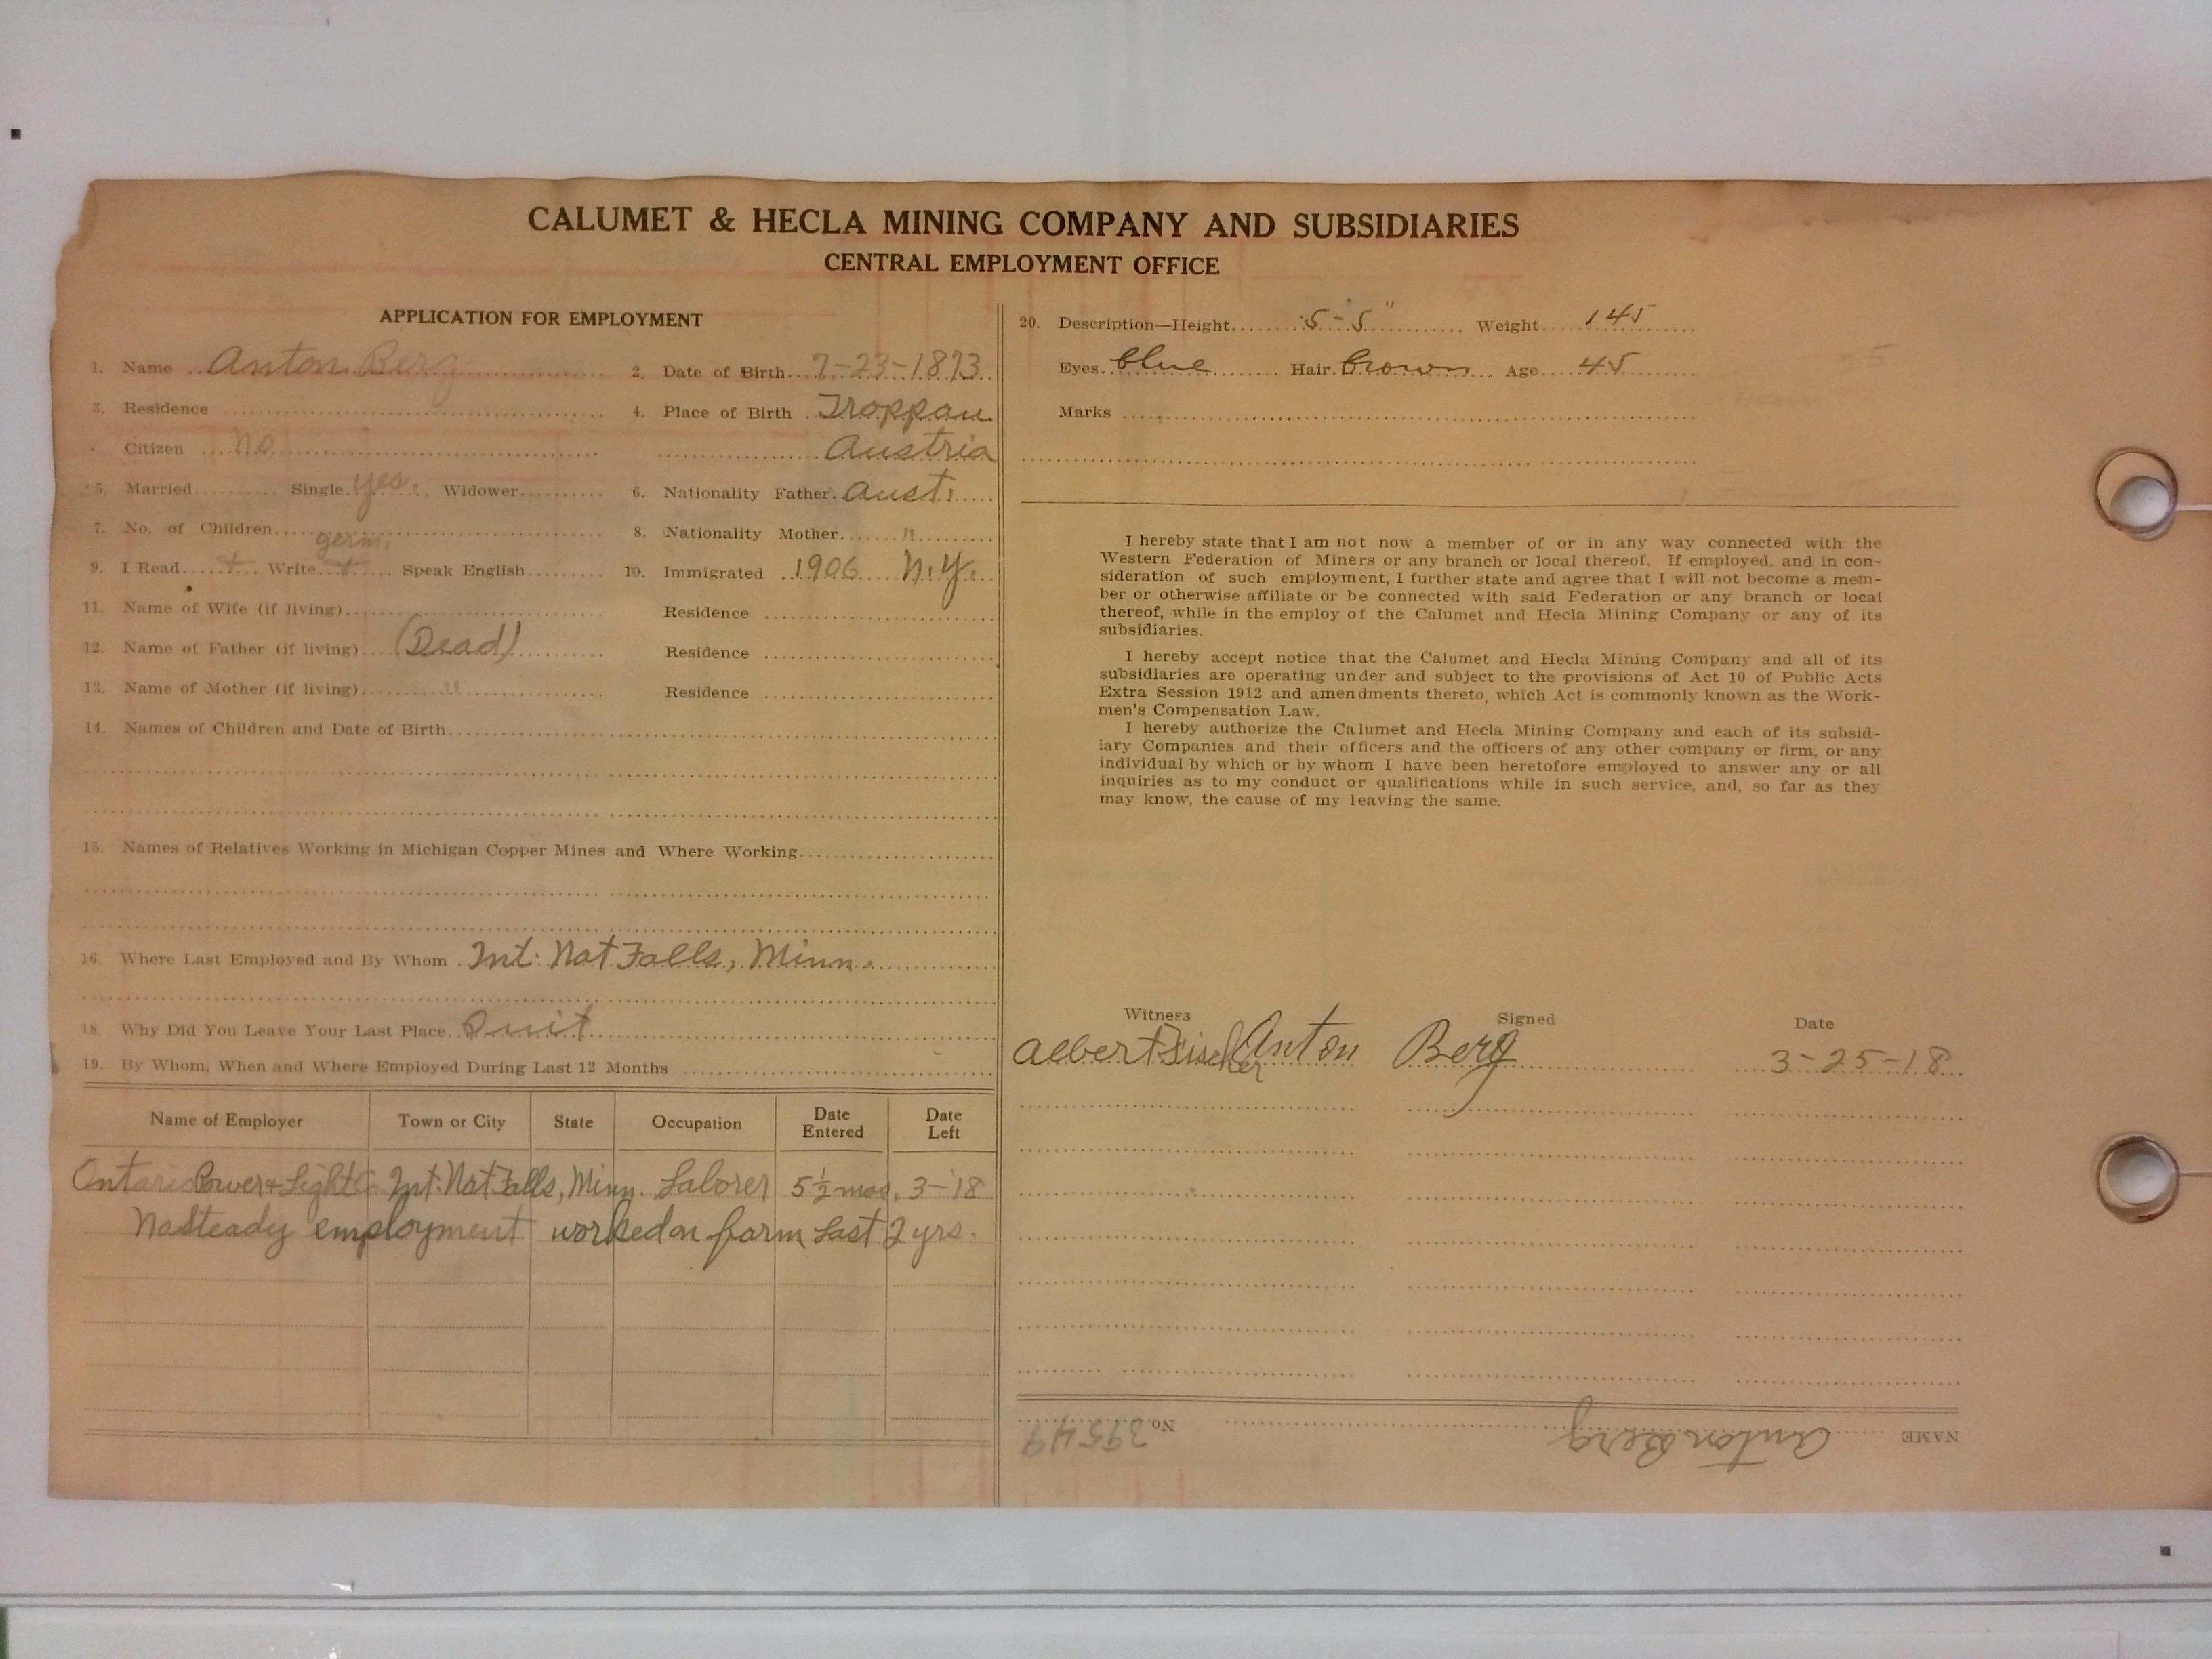 CALUMET & HECLA MINING COMPANY AND SUBSIDIARIES
CENTRAL EMPLOYMENT OFFICE
APPLICATION FOR EMPLOYMENT
1. Name Anton Berg 2. Date of Birth 7-23-1873
3. Residence 4. Place of Birth Troppau
Citizen no Austria
5. Married Single yes. Widower 6. Nationality Father Aust.
7. No. of Children 8. Nationality Mother "
germ.
9. I Read + Write + Speak English 10. Immigrated 1906 N.Y.
11. Name of Wife (if living) Residence
12. Name of Father (if living) (Dead) Residence
13. Name of Mother (if living) " Residence
14. Names of Children and Date of Birth
15. Names of Relatives Working in Michigan Copper Mines and Where Working
16. Where Last Employed and By Whom Int. Nat Falls, Minn.
18. Why Did You Leave Your Last Place Quit
19. By Whom, When and Where Employed During Last 12 Months
Name of Employer Town or City State Occupation Date Entered Date Left
Ontario Power & Light Co Int. Nat Falls, Minn. Laborer 5½ mos. 3-'18
No Steady employment worked on farm Last 2 yrs.
20. Description—Height 5-5" Weight 145
Eyes blue Hair brown Age 45
Marks
I hereby state that I am not now a member of or in any way connected with the
Western Federation of Miners or any branch or local thereof. If employed, and in con-
sideration of such employment, I further state and agree that I will not become a mem-
ber or otherwise affiliate or be connected with said Federation or any branch or local
thereof, while in the employ of the Calumet and Hecla Mining Company or any of its
subsidiaries.
I hereby accept notice that the Calumet and Hecla Mining Company and all of its
subsidiaries are operating under and subject to the provisions of Act 10 of Public Acts
Extra Session 1912 and amendments thereto, which Act is commonly known as the Work-
men's Compensation Law.
I hereby authorize the Calumet and Hecla Mining Company and each of its subsid-
iary Companies and their officers and the officers of any other company or firm, or any
individual by which or by whom I have been heretofore employed to answer any or all
inquiries as to my conduct or qualifications while in such service, and, so far as they
may know, the cause of my leaving the same.
Witness Signed Date
Albert Fischer Anton Berg 3-25-18
NAME Anton Berg No. 39549